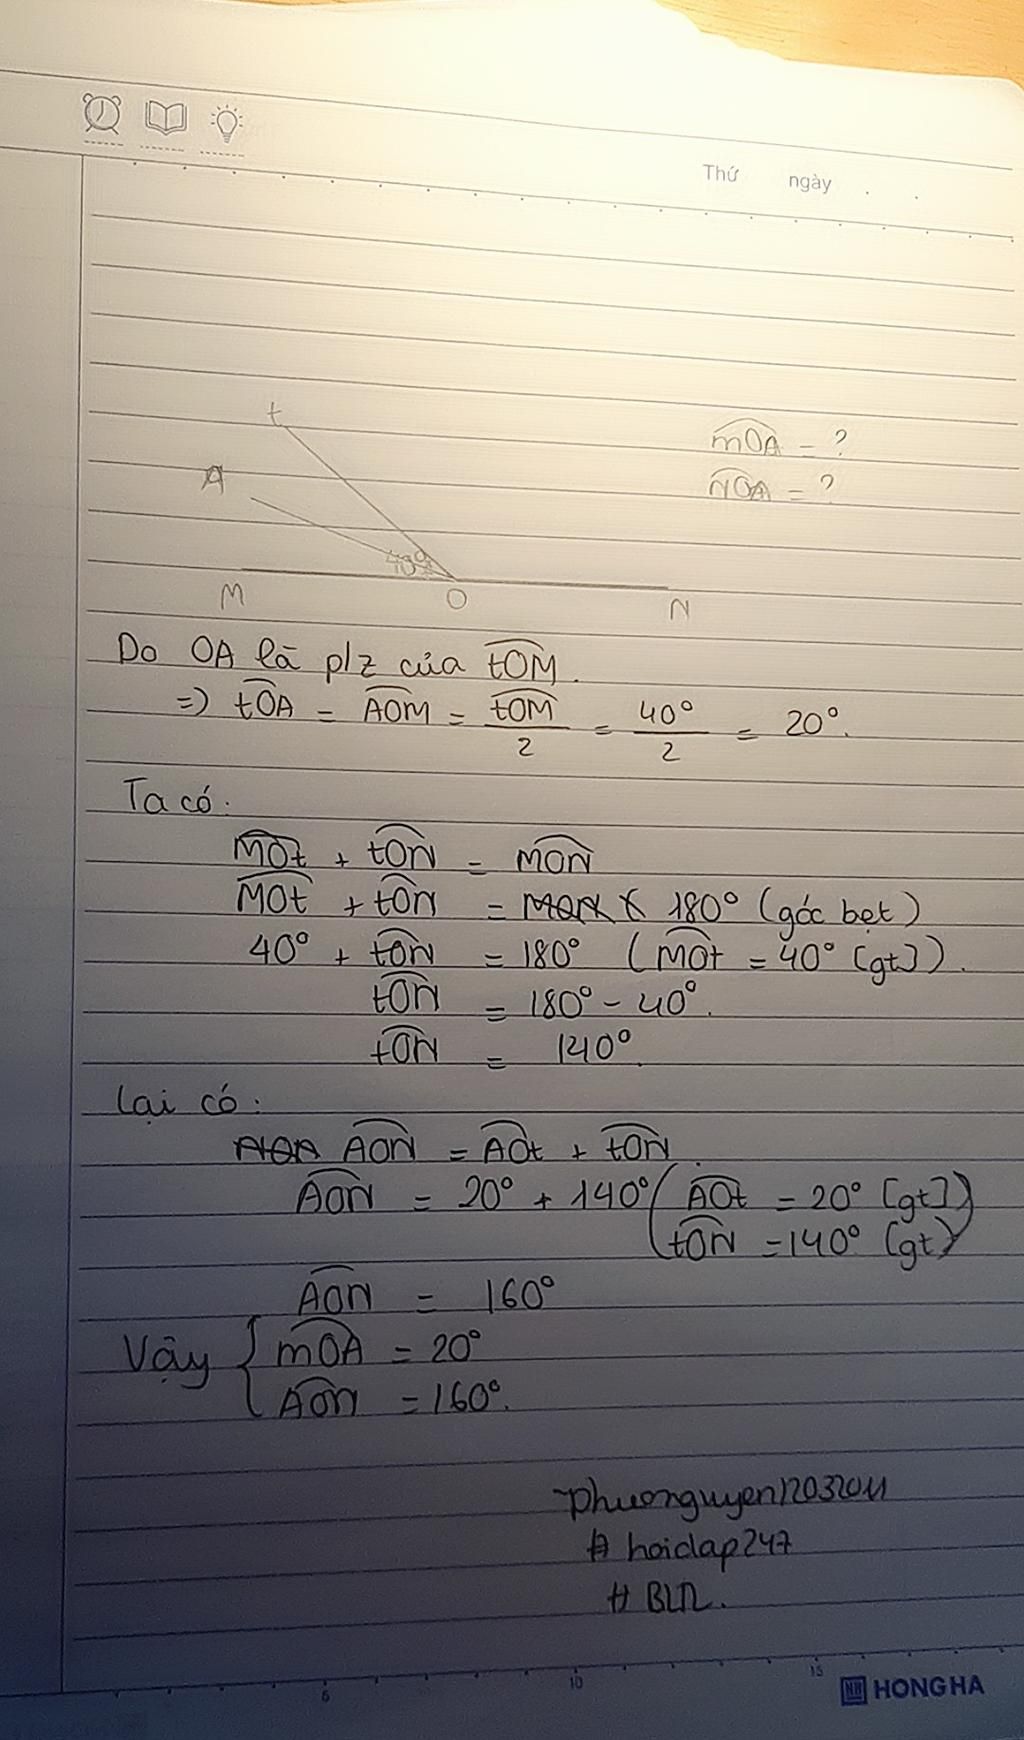 Thứ ngày
t
A
mOA = ?
NOA = ?
40°
M O N
Do OA là p/z của tOM.
=> tOA = AOM = tOM/2 = 40°/2 = 20°.
Ta có:
MOt + tON = MON
MOt + tON = 180° (góc bẹt)
40° + tON = 180° (MOt = 40° (gt)).
tON = 180° - 40°.
tON = 140°.
Lại có:
AON = AOt + tON.
AON = 20° + 140° (AOt = 20° (gt))
(tON = 140° (gt)
AON = 160°
Vậy { mOA = 20°
AON = 160°.
~phuonguyen12032011
# hoidap247
# BLN.
5 10 15
HONG HA